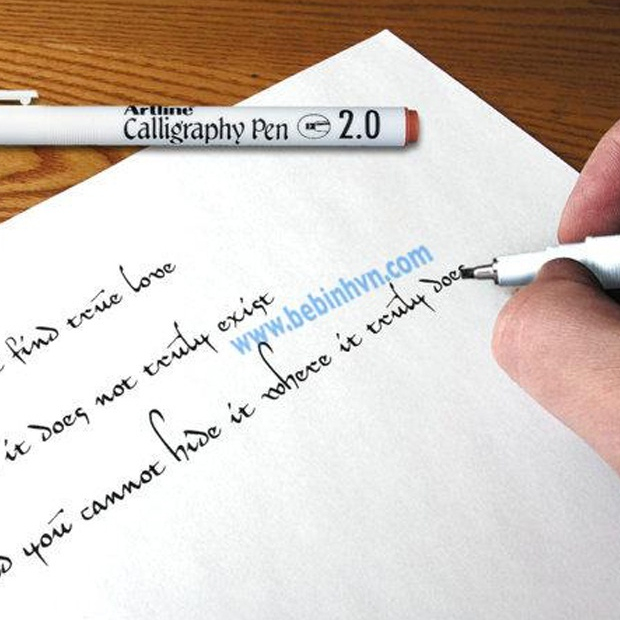 Artline
Calligraphy Pen 2.0
find true love
it does not truly exist
you cannot hide it where it truly does
www.bebinhvn.com